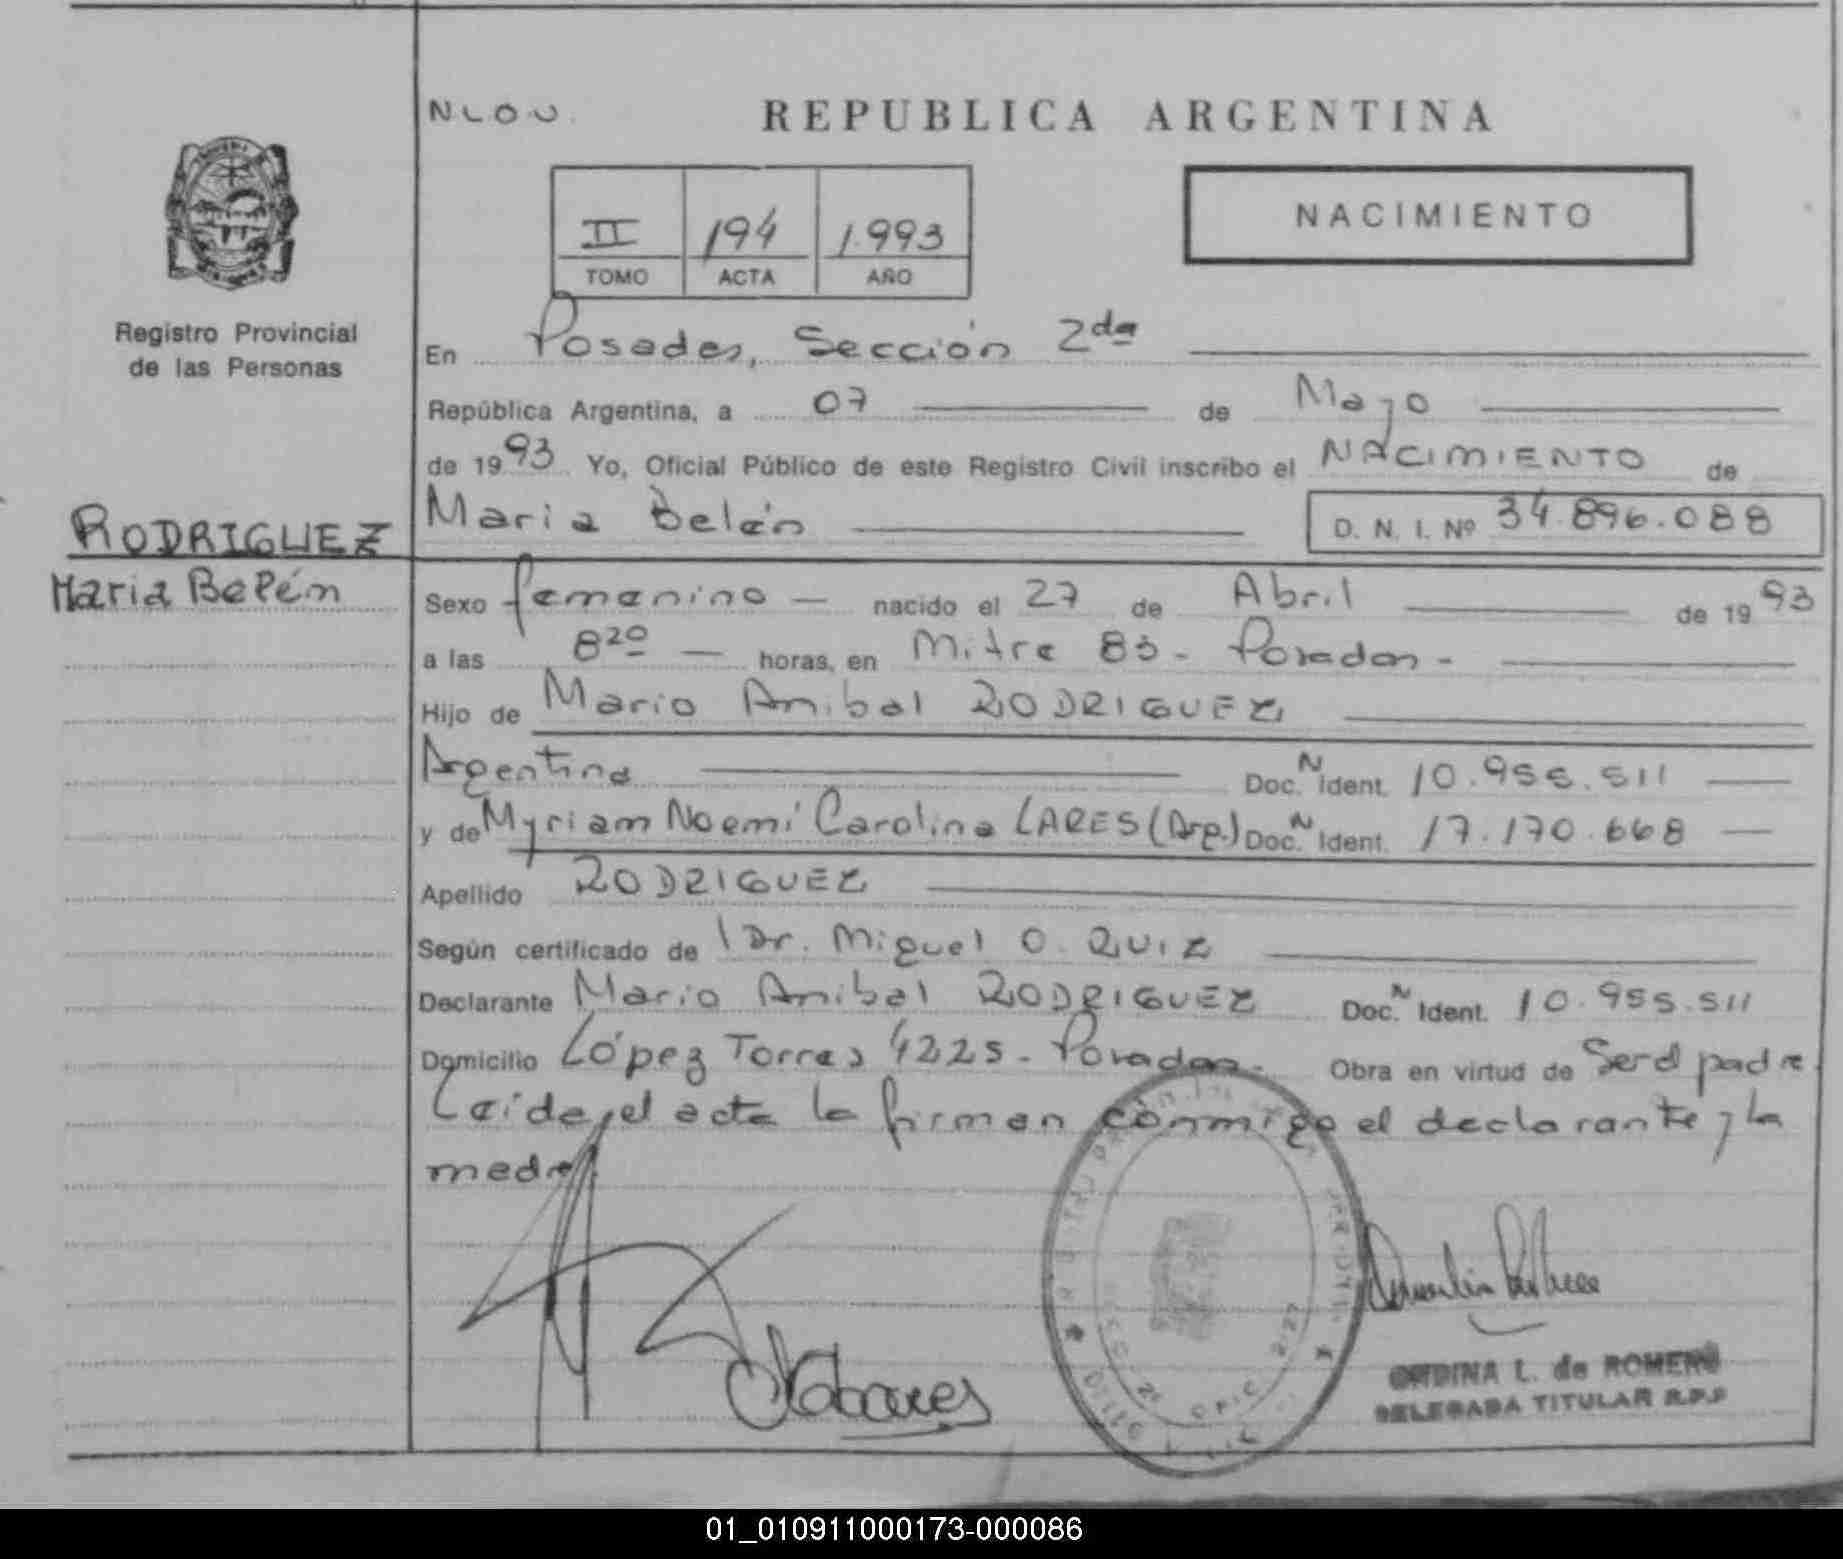 N L O U.
REPUBLICA ARGENTINA
II 194 1.993
TOMO ACTA AÑO
NACIMIENTO
Registro Provincial
de las Personas
En Posadas, Sección 2da
República Argentina, a 07 de Mayo
de 1993 Yo, Oficial Público de este Registro Civil inscribo el NACIMIENTO de
Maria Belén D. N. I. Nº 34.896.088
RODRIGUEZ
Maria Belén
Sexo femenino nacido el 27 de Abril de 1993
a las 8 20 horas, en Mitre 83 - Posadas -
Hijo de Mario Anibal RODRIGUEZ
Argentina Doc. N Ident. 10.955.511
y de Myriam Noemí Carolina LARES (Arg.) Doc. N Ident. 17.170.668
Apellido RODRIGUEZ
Según certificado de Dr. Miguel O. RUIZ
Declarante Mario Anibal RODRIGUEZ Doc. N Ident. 10.955.511
Domicilio López Torres 4225 - Posadas - Obra en virtud de Ser el padre.
Leída el acta la firman conmigo el declarante y la
madre.
ONDINA L. de ROMERO
DELEGADA TITULAR R.P.P
01_010911000173-000086